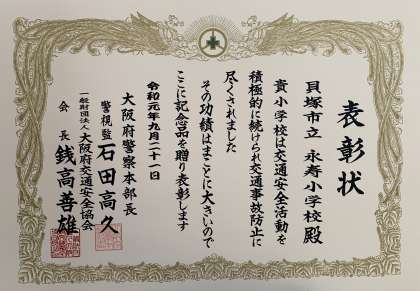 表彰状
貝塚市立 永寿小学校殿
貴小学校は交通安全活動を
積極的に続けられ交通事故防止に
尽くされました
その功績はまことに大きいので
ここに記念品を贈り表彰します
令和元年九月二十一日
大阪府警察本部長
警視監 石田高久
一般財団法人 大阪府交通安全協会
会長 銭高善雄